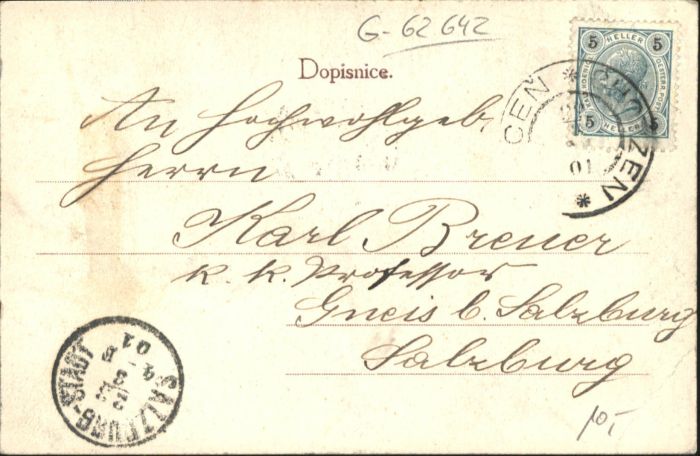 G-62 642
5 HELLER 5
5 HELLER 5
Dopisnice.
CHOTZEN * CHOCEN *
01
An Hochwohlgeb.
Herrn
Karl Breuer
k. k. Professor
Gneis b. Salzburg
Salzburg
SALZBURG-STADT
01
10,-